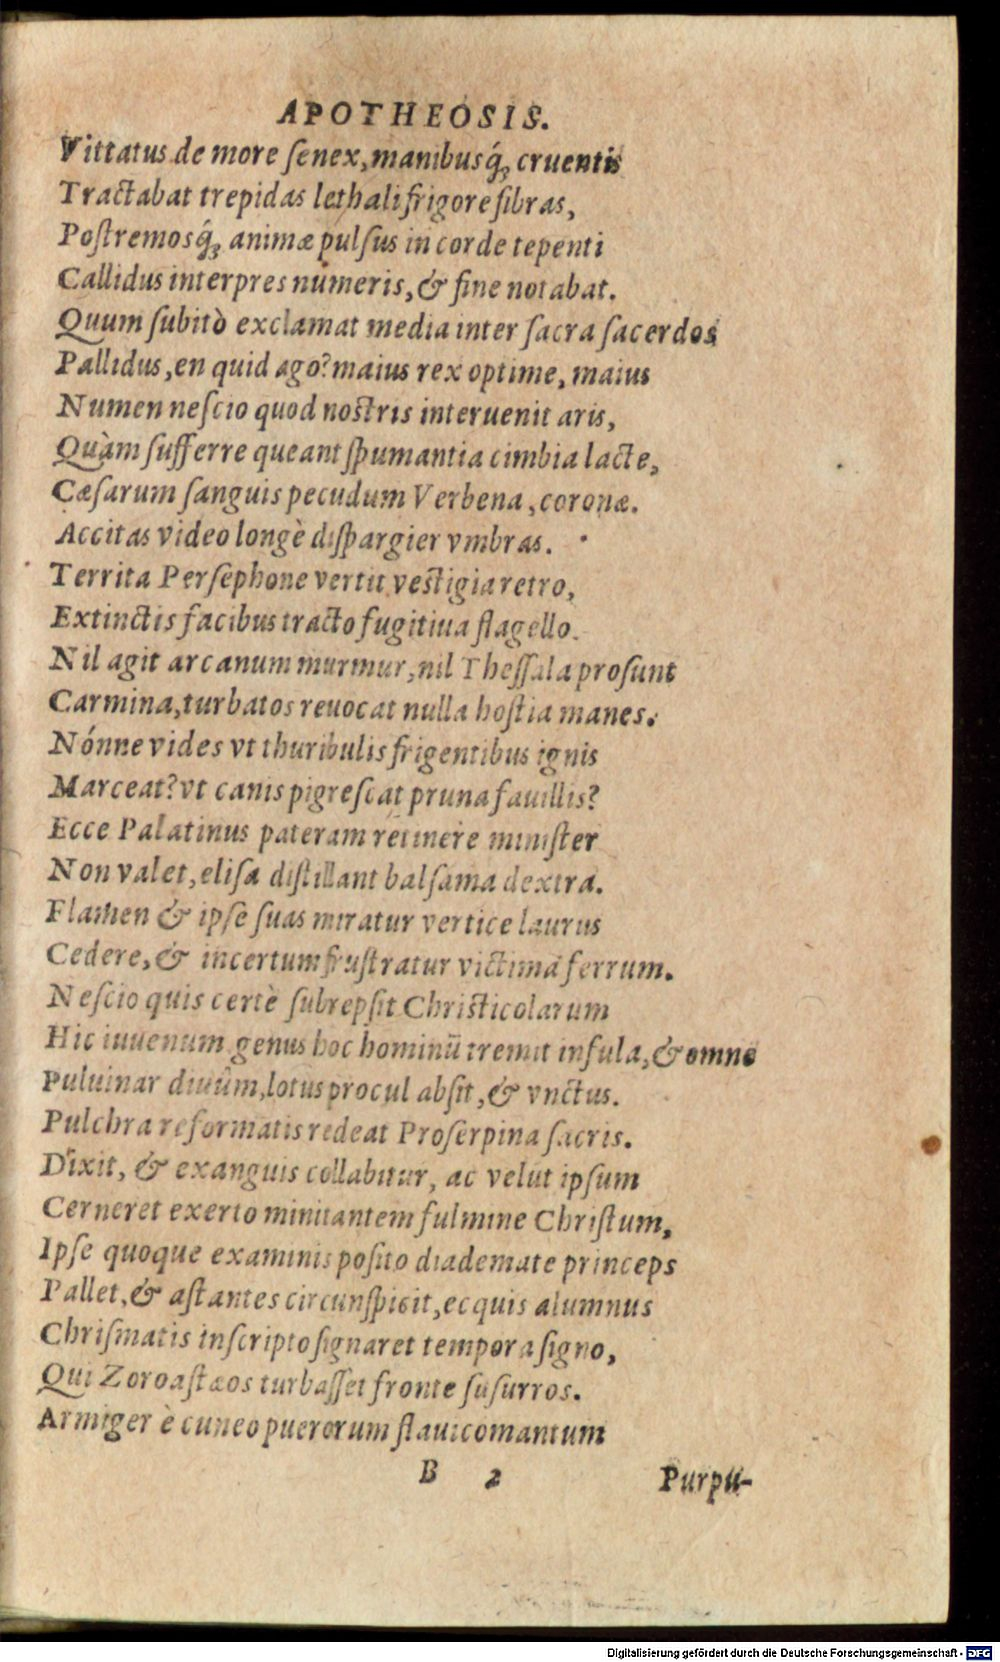 APOTHEOSIS.
Vittatus de more ſenex, manibusq́; cruentis
Tractabat trepidas lethali frigore fibras,
Poſtremosq́; animæ pulſus in corde tepenti
Callidus interpres numeris, & fine notabat.
Quum ſubitò exclamat media inter ſacra ſacerdos
Pallidus, en quid ago? maius rex optime, maius
Numen neſcio quod noſtris interuenit aris,
Quàm ſufferre queant ſpumantia cimbia lacte,
Cæſarum ſanguis pecudum Verbena, coronæ.
Accitas video longè diſpargier vmbras.
Territa Perſephone vertit veſtigia retro,
Extinctis facibus tracto fugitiua flagello.
Nil agit arcanum murmur, nil Theſſala proſunt
Carmina, turbatos reuocat nulla hoſtia manes.
Nónne vides vt thuribulis frigentibus ignis
Marceat? vt canis pigreſcat pruna fauillis?
Ecce Palatinus pateram retinere miniſter
Non valet, eliſa diſtillant balſama dextra.
Flamen & ipſe ſuas miratur vertice laurus
Cedere, & incertum fruſtratur victima ferrum.
Neſcio quis certè ſubrepſit Chriſticolarum
Hic iuuenum genus hoc hominū tremit infula, & omne
Puluinar diuûm, lotus procul abſit, & vnctus.
Pulchra reformatis redeat Proſerpina ſacris.
Dixit, & exanguis collabitur, ac velut ipſum
Cerneret exerto minitantem fulmine Chriſtum,
Ipſe quoque examinis poſito diademate princeps
Pallet, & aſtantes circunſpicit, ecquis alumnus
Chriſmatis inſcripto ſignaret tempora ſigno,
Qui Zoroaſtæos turbaſſet fronte ſuſurros.
Armiger è cuneo puerorum flauicomantum
B 2 Purpu-
Digitalisierung gefördert durch die Deutsche Forschungsgemeinschaft - DFG